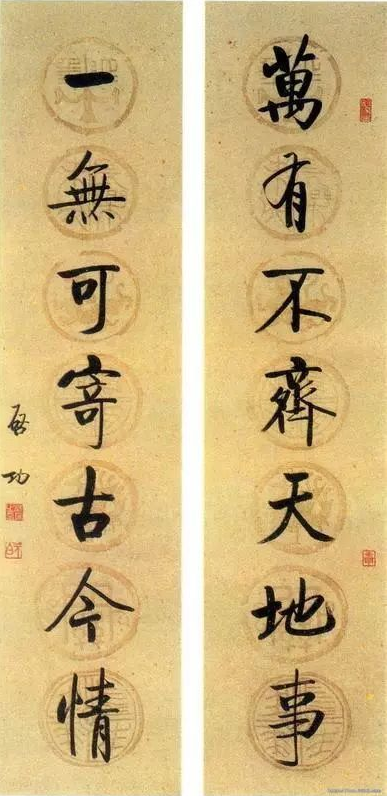 萬有不齊天地事
一無可寄古今情
啓功